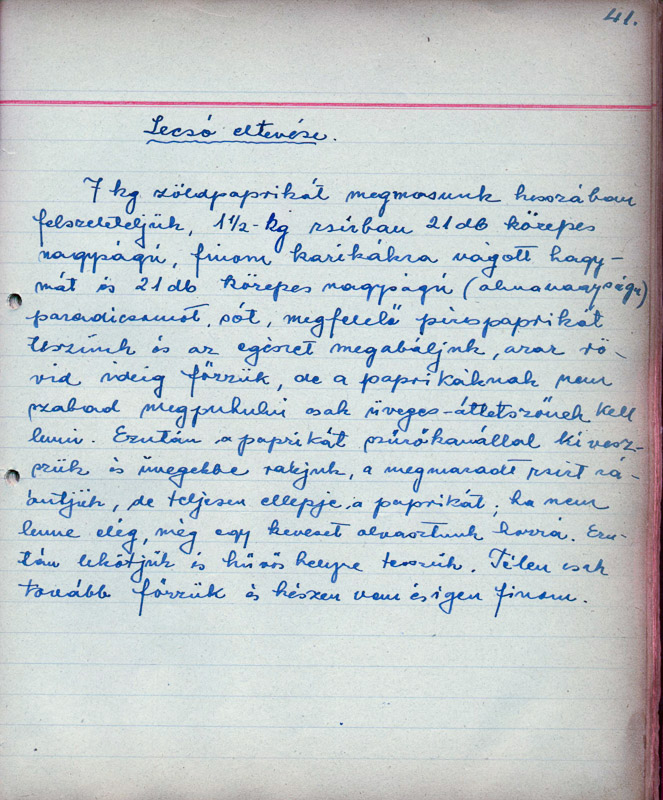 41.
Lecsó eltevése.
7 kg zöldpaprikát megmosunk hosszában
felszeleteljük, 1½-kg zsírban 21 db közepes
nagyságú, finom karikákra vágott hagy-
mát és 21 db közepes nagyságú (almanagyságú)
paradicsomot, sót, megfelelő pirospaprikát
teszünk és az egészet megabáljuk, azaz rö-
vid ideig főzzük, de a paprikáknak nem
szabad megpuhulni csak üveges-átletszőnek kell
lenni. Ezután a paprikát szűrőkanállal kivesz-
szük és üvegekbe rakjuk, a megmaradt zsírt rá-
öntjük, de teljesen ellepje a paprikát; ha nem
lenne elég, még egy keveset olvasztunk hozzá. Ezu-
tán lekötjük és hűvös helyre tesszük. Télen csak
tovább főzzük és készen van és igen finom.